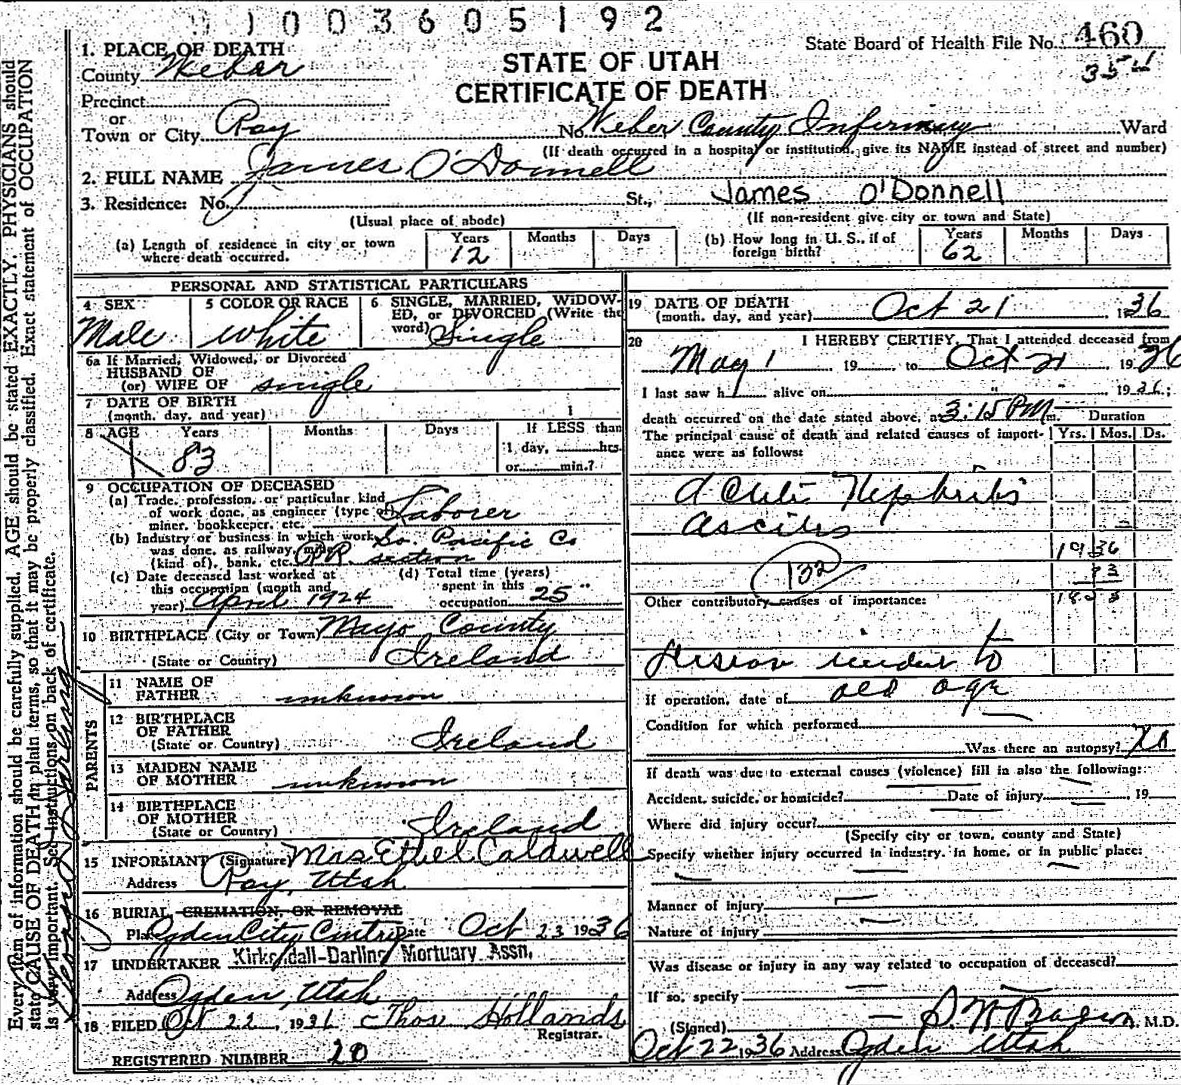 1003605192
State Board of Health File No. 460
354
STATE OF UTAH
CERTIFICATE OF DEATH
1. PLACE OF DEATH
County Weber
Precinct
or
Town or City Roy No. Weber County Infirmary Ward
(If death occurred in a hospital or institution, give its NAME instead of street and number)
2. FULL NAME James O'Donnell
3. Residence: No. St., James O'Donnell
(Usual place of abode) (If non-resident give city or town and State)
(a) Length of residence in city or town where death occurred. Years 12 Months Days
(b) How long in U. S., if of foreign birth? Years 62 Months Days
PERSONAL AND STATISTICAL PARTICULARS
4 SEX Male
5 COLOR OR RACE White
6 SINGLE, MARRIED, WIDOWED, or DIVORCED (Write the word) Single
6a If Married, Widowed, or Divorced
HUSBAND OF
(or) WIFE OF single
7 DATE OF BIRTH
(month, day, and year)
8 AGE Years 83 Months Days If LESS than 1 day, hrs. or min.?
9 OCCUPATION OF DECEASED
(a) Trade, profession, or particular kind of work done, as engineer (type of) miner, bookkeeper, etc. Laborer
(b) Industry or business in which work was done, as railway, (kind of), bank, etc. So. Pacific Co RR. section
(c) Date deceased last worked at this occupation (month and year) April 1924
(d) Total time (years) spent in this occupation 25 "
10 BIRTHPLACE (City or Town) Mayo County
(State or Country) Ireland
PARENTS
11 NAME OF FATHER unknown
12 BIRTHPLACE OF FATHER
(State or Country) Ireland
13 MAIDEN NAME OF MOTHER unknown
14 BIRTHPLACE OF MOTHER
(State or Country) Ireland
15 INFORMANT (Signature) Mrs Ethel Caldwell
Address Roy, Utah
16 BURIAL CREMATION, OR REMOVAL
Place Ogden City Date Oct 23 1936
17 UNDERTAKER Kirkendall-Darling Mortuary Assn.
Address Ogden, Utah
18 FILED Oct 22, 1936 Thos Hollands
Registrar.
REGISTERED NUMBER 20
19 DATE OF DEATH
(month, day, and year) Oct 21 1936
20 I HEREBY CERTIFY, That I attended deceased from
May 1 19 to Oct 21 1936
I last saw h alive on " 1936;
death occurred on the date stated above, at 3:15 PM m. Duration
The principal cause of death and related causes of importance were as follows: Yrs. Mos. Ds.
Acute Nephritis
ascites
132
1936
83
1853
Other contributory causes of importance:
to
old age
If operation, date of
Condition for which performed
Was there an autopsy? No
If death was due to external causes (violence) fill in also the following:
Accident, suicide, or homicide? Date of injury 19
Where did injury occur?
(Specify city or town, county and State)
Specify whether injury occurred in industry, in home, or in public place:
Manner of injury
Nature of injury
Was disease or injury in any way related to occupation of deceased?
If so, specify
(Signed) M.D.
Oct 22 1936 Address Ogden Utah
Every item of information should be carefully supplied. AGE should be stated EXACTLY. PHYSICIANS should
state CAUSE OF DEATH in plain terms, so that it may be properly classified. Exact statement of OCCUPATION
is very important. See instructions on back of certificate.